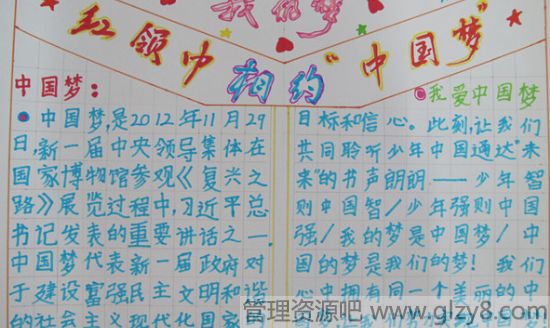 我的梦
红领巾相约“中国梦”
中国梦：
中国梦,是2012年11月29
日,新一届中央领导集体在
国家博物馆参观《复兴之
路》展览过程中,习近平总
书记发表的重要讲话之一
中国梦代表新一届政府对
于建设富强民主文明和谐
的社会主义现代化国家的
我爱中国梦
目标和信心。此刻,让我们
共同聆听少年中国通达“未
来”的书声朗朗——少年智
则中国智/少年强则中国
强/我的梦是中国梦/中
国的梦是我们的梦!我们
心中拥有同一个美丽的中
管理资源吧 www.glzy8.com